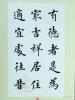 有德者是為
最吉祥居住
適宜處往昔